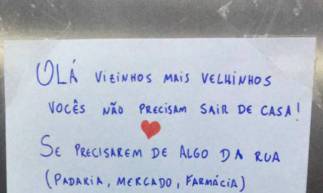 OLÁ VIZINHOS MAIS VELHINHOS
VOCÊS NÃO PRECISAM SAIR DE CASA!
SE PRECISAREM DE ALGO DA RUA
(PADARIA, MERCADO, FARMÁCIA)